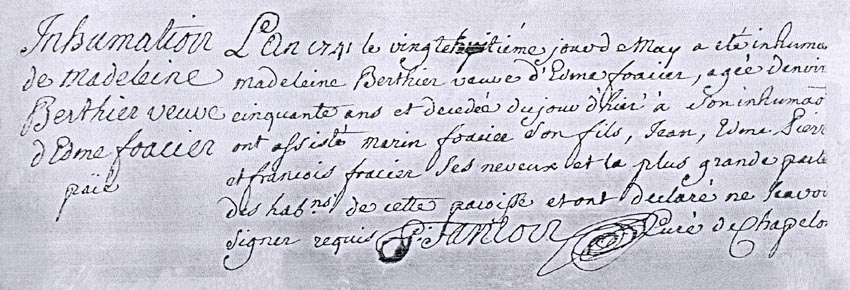 Inhumation
de madeleine
Berthier veuve
d'Edme foacier
païé
L'an 1741 le vingt huitiéme jour de May a été inhumé
madeleine Berthier veuve d'Edme foacier, agée denvir
cinquante ans et decedée du jour d'hier à son inhumaõ
ont assisté marin foacier son fils, Jean, Edme Pierr
et francois fracier ses neveux et la plus grande partie
des hab.ns de cette paroisse et ont declaré ne scavoi
signer requis Curé de Chapelo